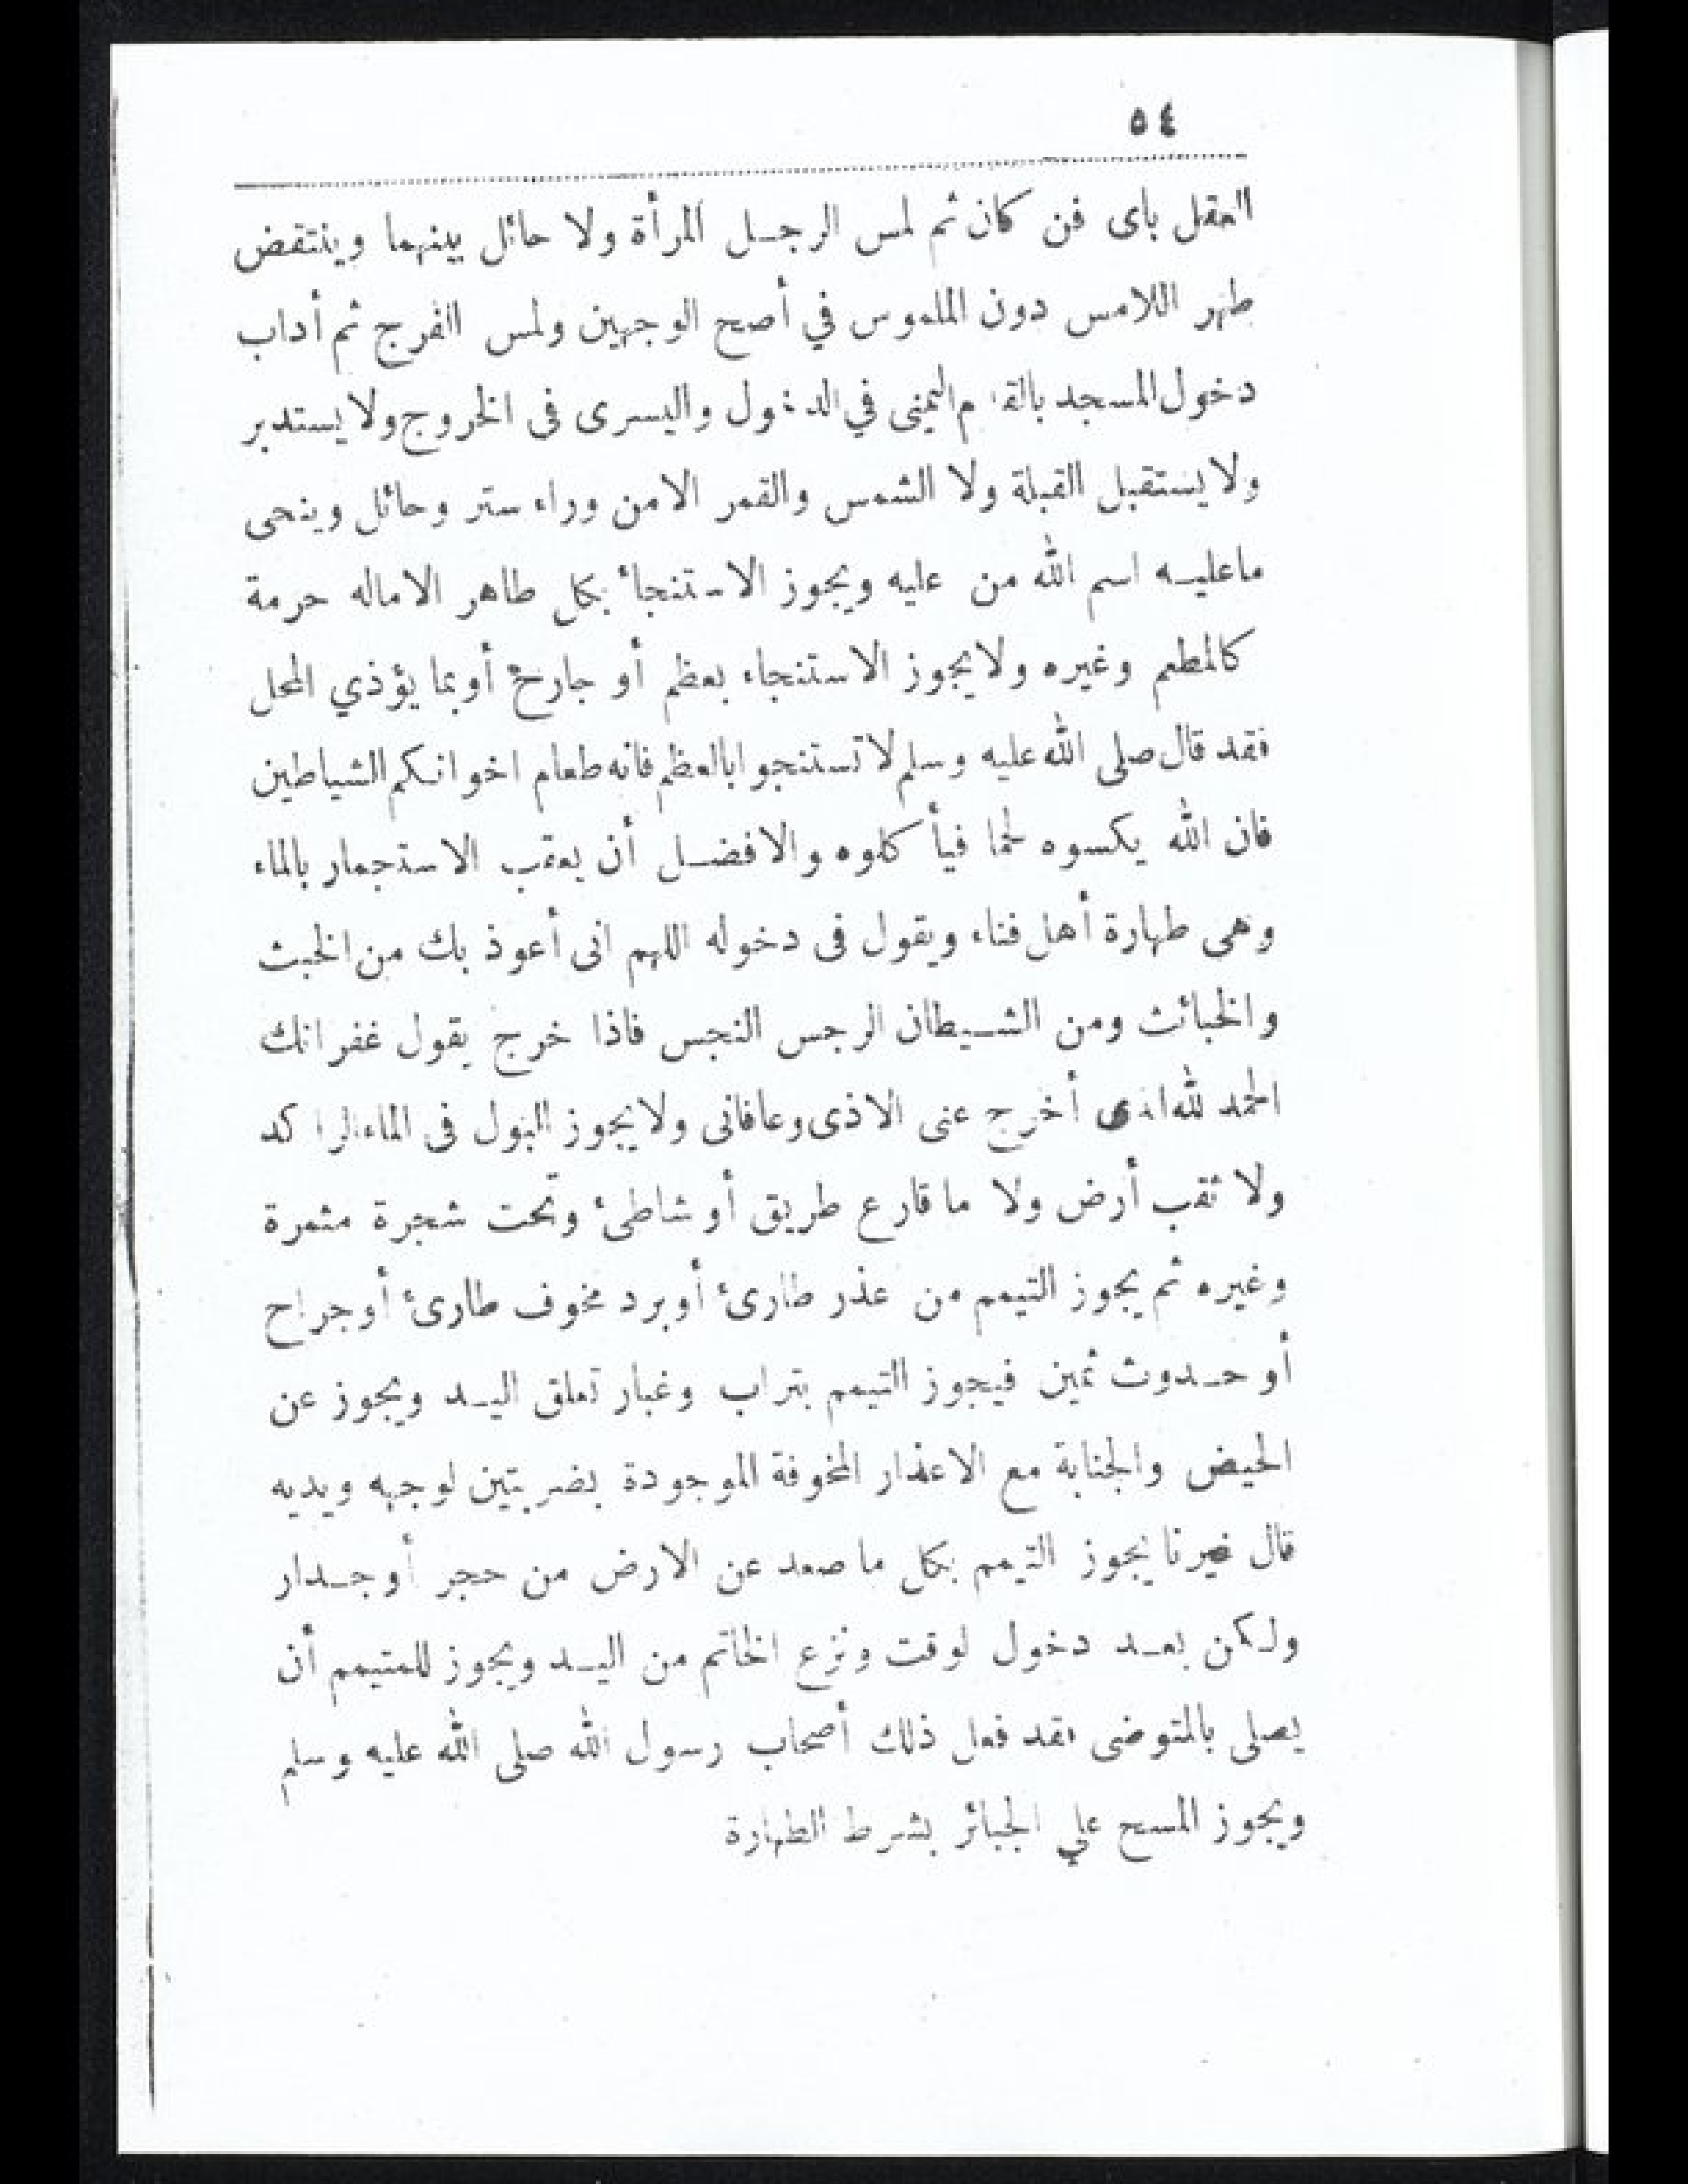 ٥٤
العقل باى فن كان ثم لمس الرجل المرأة ولا حائل بينهما وينتقض
طهر اللامس دون الملموس في أصح الوجهين ولمس الفرج ثم أداب
دخول المسجد بالقدم اليمنى في الدخول واليسرى فى الخروج ولا يستدبر
ولا يستقبل القبلة ولا الشمس والقمر الامن وراء ستر وحائل وينحى
ماعليه اسم الله من عليه ويجوز الاستنجاء بكل طاهر الاماله حرمة
كالمطعم وغيره ولا يجوز الاستنجاء بعظم أو جارح أو بما يؤذي المحل
فقد قال صلى الله عليه وسلم لا تستنجوا بالعظم فانه طعام اخوانكم الشياطين
فان الله يكسوه لحما فيأكلوه والافضل أن يعقب الاستجمار بالماء
وهى طهارة أهل فناء ويقول فى دخوله اللهم انى أعوذ بك من الخبث
والخبائث ومن الشيطان الرجس النجس فاذا خرج يقول غفرانك
الحمد لله الذى أخرج عنى الاذى وعافانى ولا يجوز البول فى الماء الراكد
ولا ثقب أرض ولا ما قارع طريق أو شاطئ وتحت شجرة مثمرة
وغيره ثم يجوز التيمم من عذر طارئ أو برد مخوف طارئ أو جراح
أو حدوث ثمين فيجوز التيمم بتراب وغبار تعلق اليد ويجوز عن
الحيض والجنابة مع الاعذار المخوفة الموجودة بضربتين لوجهه ويديه
قال غيرنا يجوز التيمم بكل ما صعد عن الارض من حجر أو جدار
ولكن بعد دخول لوقت ونزع الخاتم من اليد ويجوز للمتيمم أن
يصلى بالمتوضى فقد فعل ذلك أصحاب رسول الله صلى الله عليه وسلم
ويجوز المسح علي الجبائر بشرط الطهارة